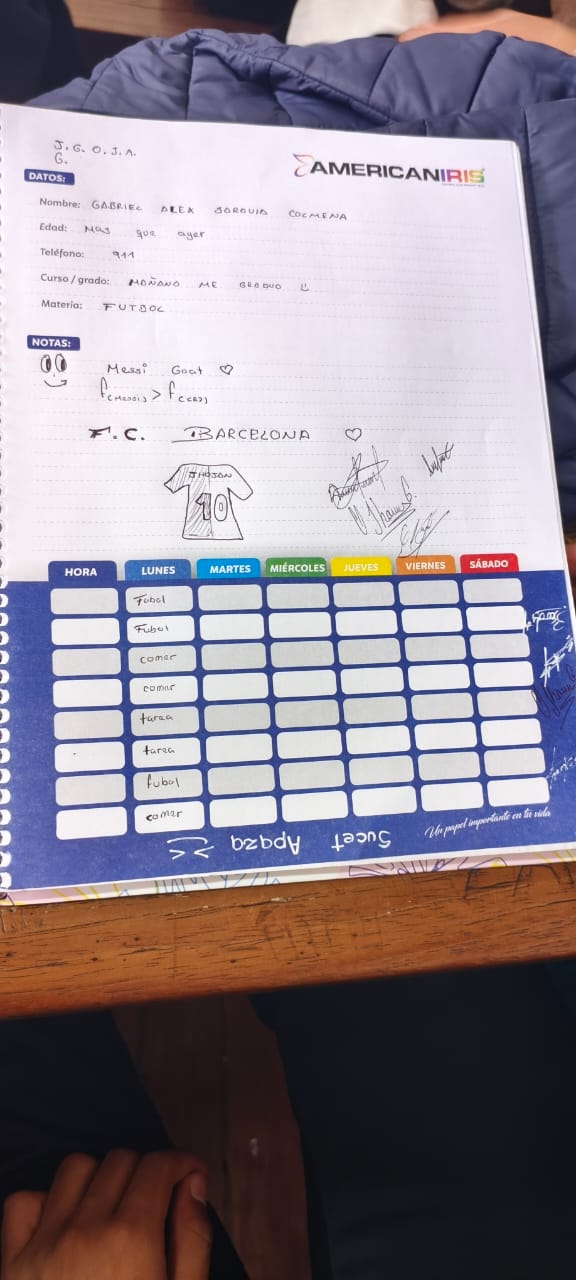 J. G. O. J. A.
G.
AMERICANIRIS
DATOS:
Nombre: GABRIEL ALEX SARQUIA COCMENA
Edad: MAS que ayer
Teléfono: 911
Curso / grado: MAÑANO ME GRADUO
Materia: FUTBOL
NOTAS:
Messi Goat ♡
f(Messi) > f(CR7)
F.C. BARCELONA ♡
JHOJAN
10
HORA LUNES MARTES MIÉRCOLES JUEVES VIERNES SÁBADO
Fubol
Fubol
comer
comer
tarea
tarea
fubol
comer
Un papel importante en tu vida
Sucet Apaza >.<